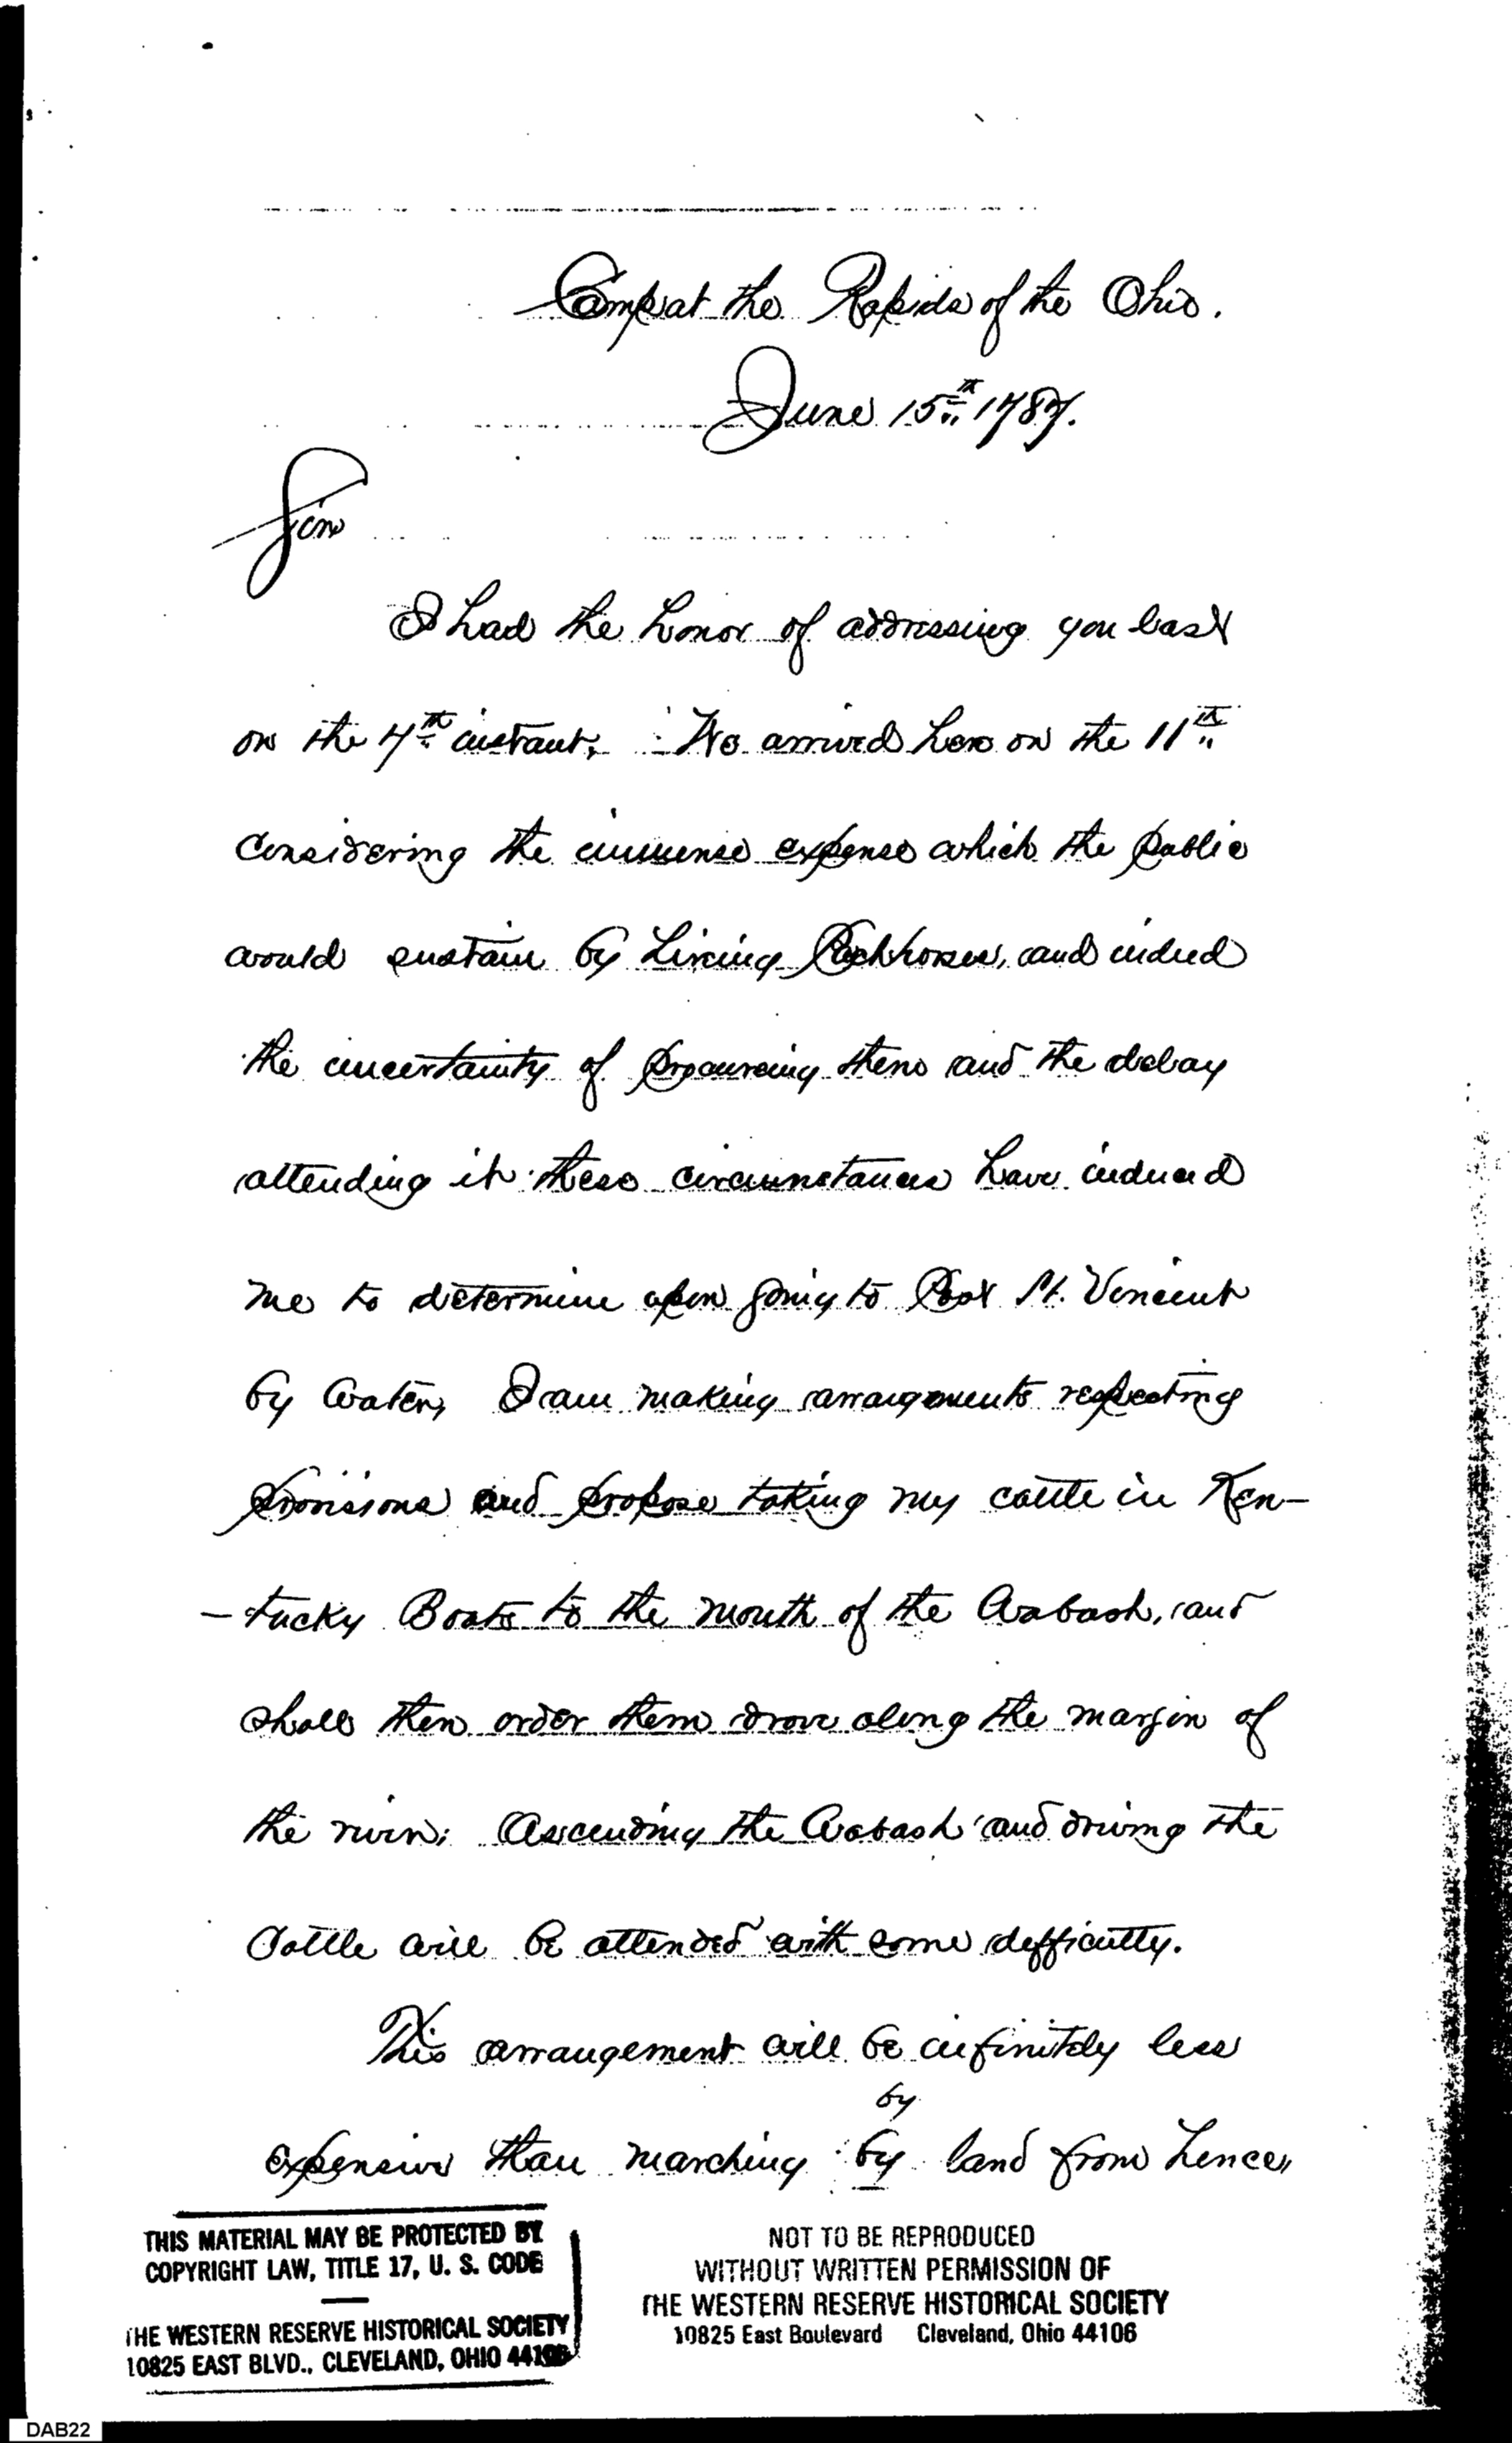 Camp at the Rapids of the Ohio.
June 15th 1787.
Sir
I had the honor of addressing you last
on the 7th instant, We arrived here on the 11th
Considering the immense expense which the public
would sustain by hireing Packhorses, and indeed
the uncertainty of procureing them and the delay
attending it these circumstances have induced
me to determine upon going to Post St. Vincent
by Water, I am making arrangements respecting
provisions and propose taking my cattle in Ken-
-tucky Boats to the mouth of the Wabash, and
shall then order them drove along the margin of
the river; Ascending the Wabash and driving the
Cattle will be attended with some defficulty.
This arrangement will be infinitely less
by
expensive than marching by land from hence,
THIS MATERIAL MAY BE PROTECTED BY
COPYRIGHT LAW, TITLE 17, U. S. CODE
THE WESTERN RESERVE HISTORICAL SOCIETY
10825 EAST BLVD., CLEVELAND, OHIO 44106
NOT TO BE REPRODUCED
WITHOUT WRITTEN PERMISSION OF
THE WESTERN RESERVE HISTORICAL SOCIETY
10825 East Boulevard Cleveland, Ohio 44106
DAB22